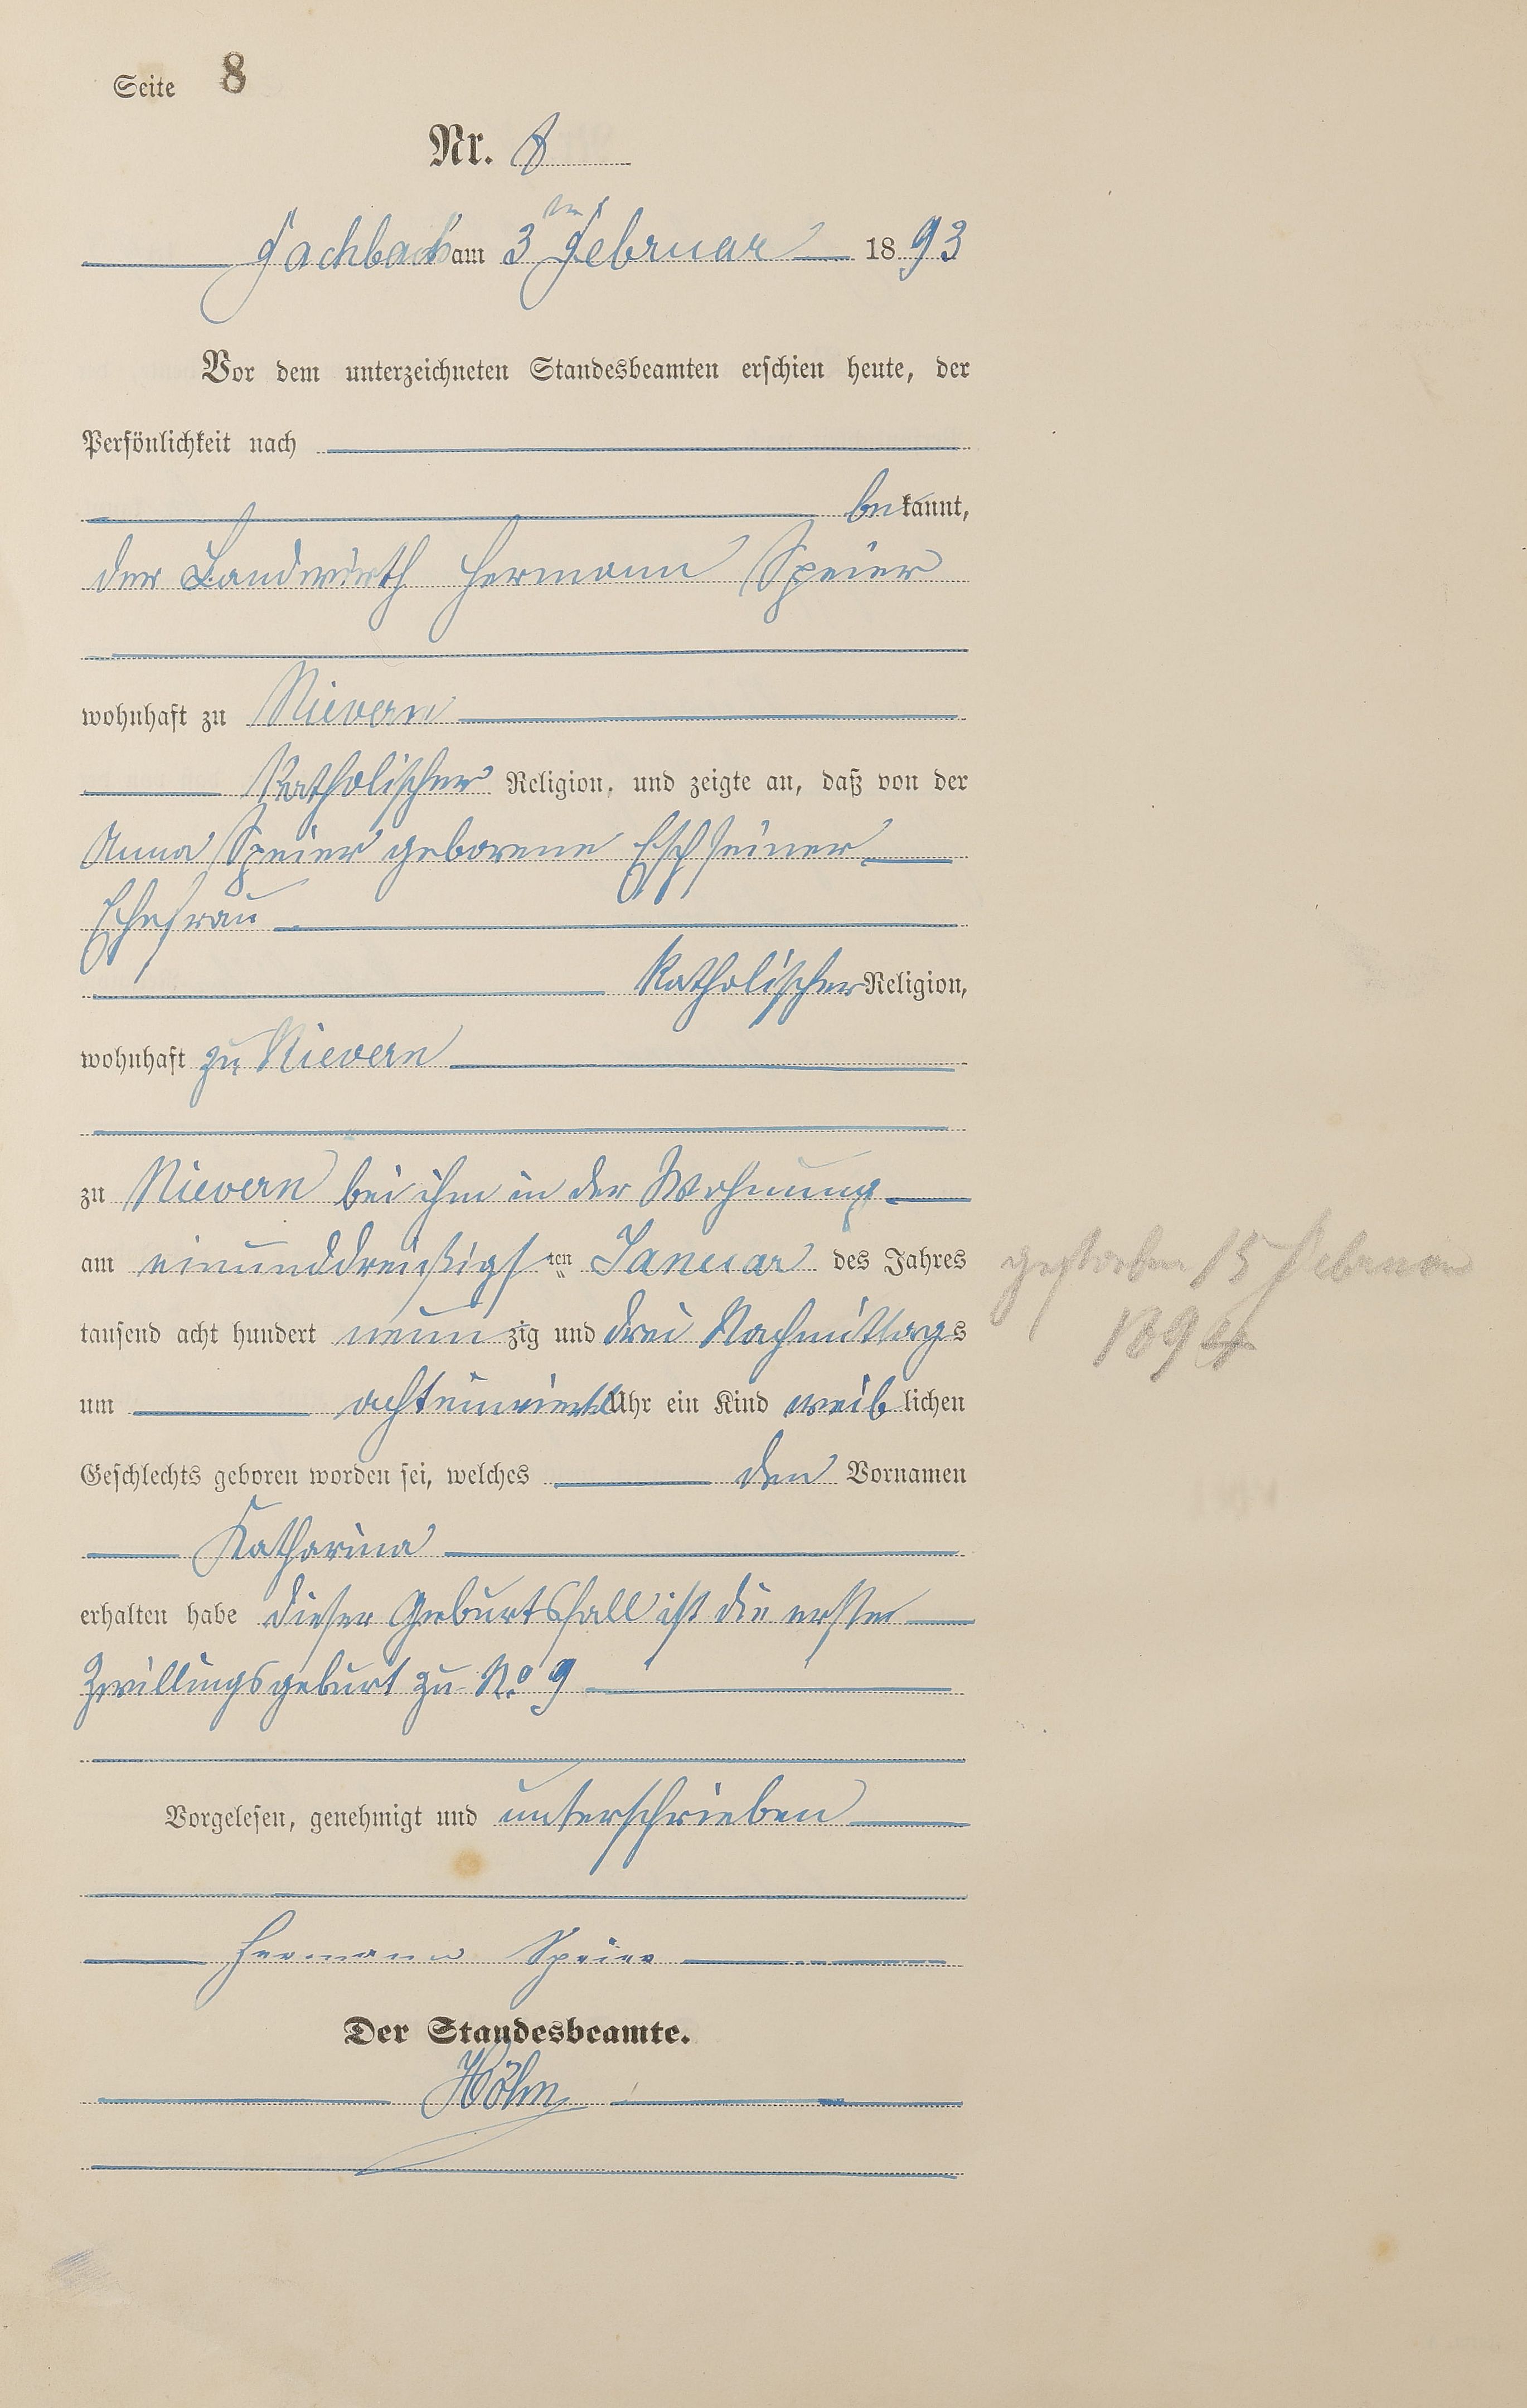 Seite 8
Nr. 8
Fachbach am 3ten Februar 1893
Vor dem unterzeichneten Standesbeamten erschien heute, der
Persönlichkeit nach
bekannt,
der Landwirth Hermann Speier
wohnhaft zu Nievern
Katholischer Religion, und zeigte an, daß von der
Anna Speier geborene Esch seiner
Ehefrau
katholischer Religion,
wohnhaft zu Nievern
zu Nievern bei ihm in der Wohnung
am einunddreißigsten Januar des Jahres
tausend acht hundert neunzig und drei Nachmittags
um achteinviertel Uhr ein Kind weiblichen
gestorben 15 Februar
1894
Geschlechts geboren worden sei, welches den Vornamen
Katharina
erhalten habe dieser Geburtsfall ist die erste
Zwillingsgeburt zu No 9
Vorgelesen, genehmigt und unterschrieben
Hermann Speier
Der Standesbeamte.
Höhn